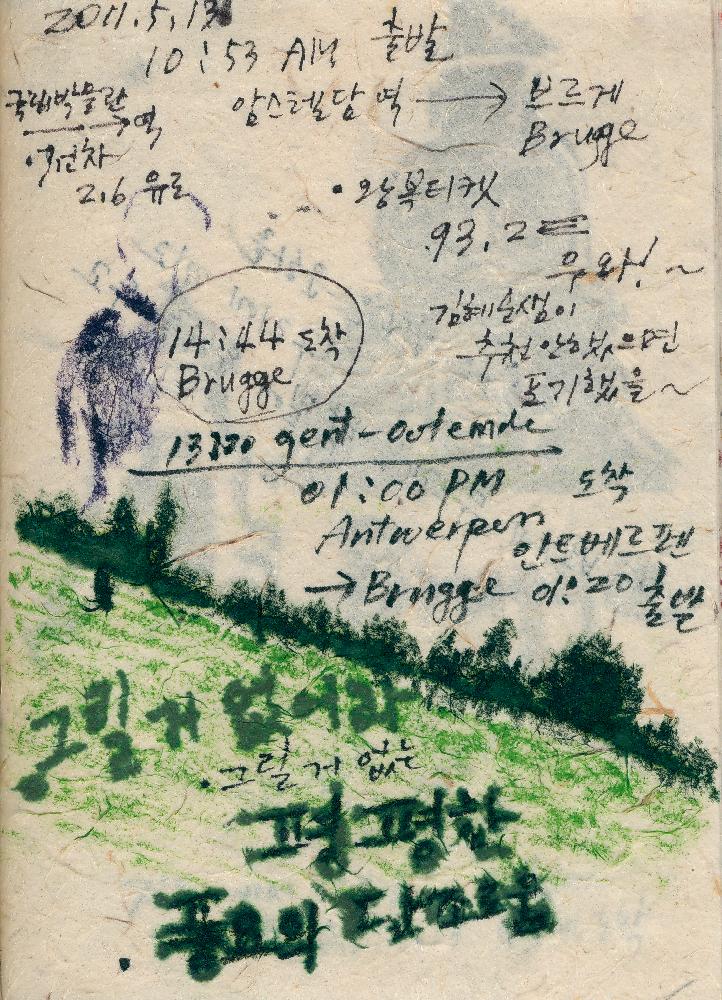 2011.5.13
10:53 AM 출발
국립박물관
→ 역
·전차
2.6 유로
암스텔담 역 → 브르게
Brugge
· 왕복티켓
93.2 E
우와! ~
김혜순샘이
추천 안했으면
포기했을~
14:44 도착
Brugge
gent-Ostende
01:00 PM 도착
Antwerpen 안트베르펜
→ Brugge 01:20 출발
그릴 거 없어라
· 그릴 거 없는
평평한
풍요와 단조로움